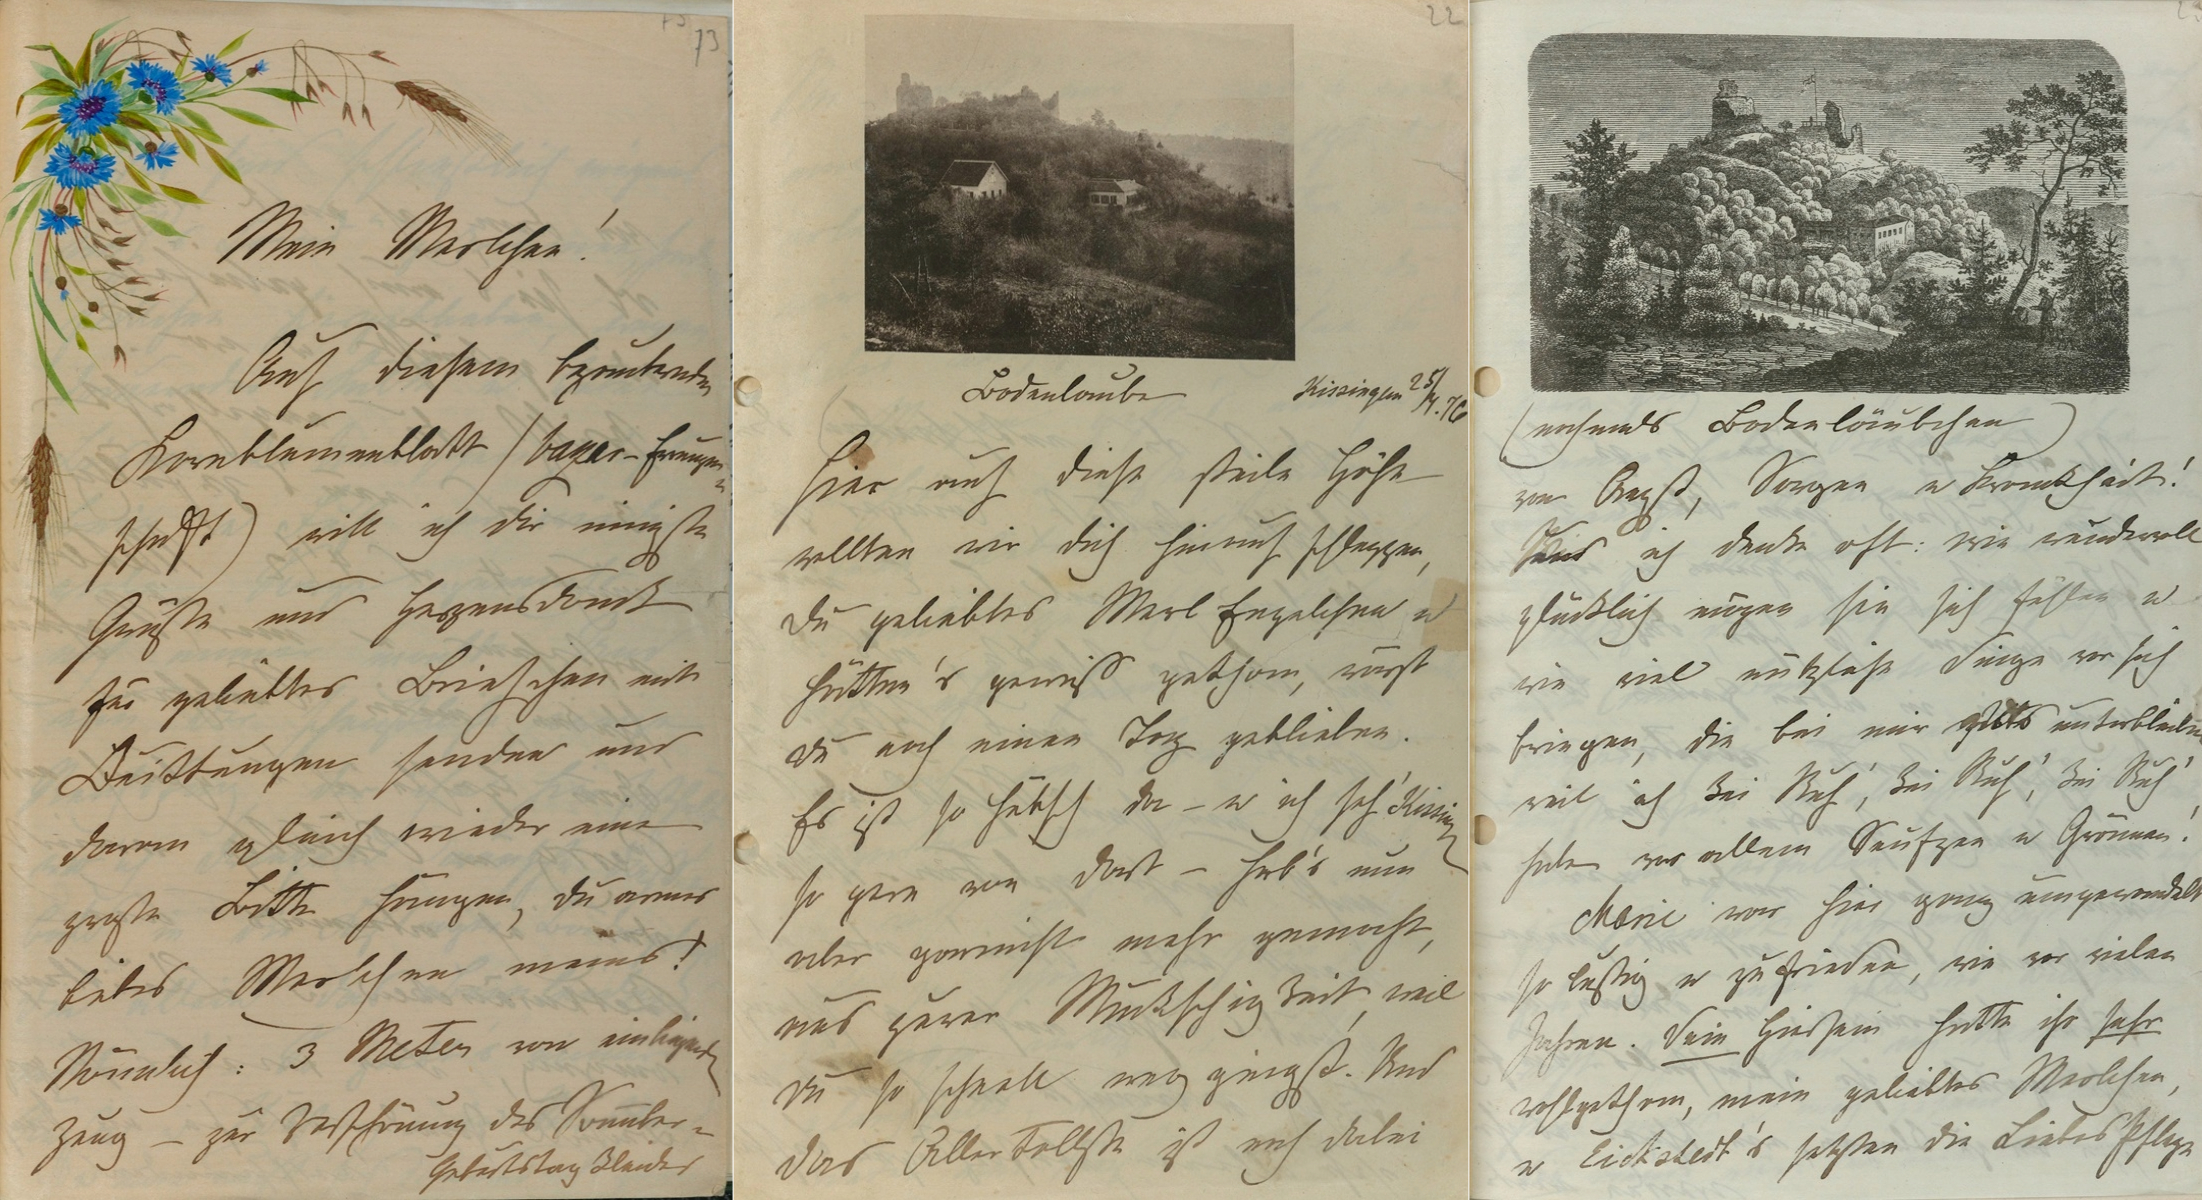 73
Mein Merlchen!
Auf diesem bezaubernden
Kornblumenblatt (bayer-Errungen-
schaft) will ich dir innigste
Grüße und Herzensdank
für geliebtes Briefchen mit
Quittungen senden und
daran gleich wieder eine
große Bitte hängen, du armes
liebes Merlchen meins!
Nämlich: 3 Meter von einliegenden
Zeug – zur des
Geburtstag Kleides
22
Bodenlaube Kissingen 25/ .76
Hier auf diese steile Höhe
wollten wir dich hinauf schleppen,
du geliebtes Merl Engelchen u
hätten's gewiß gethan, wärst
du noch einen Tag geblieben.
Es ist so hübsch da – u ich seh' Kissing
so gern von dort – hab's nun
aber garnicht mehr gemocht,
aus purer Muckschigkeit, weil
du so schnell weg gingst. Und
das Allertollste ist noch dabei
(nochmals Bodenläubchen)
von Angst, Sorgen u Krankheit!
ich denke oft: wie wundervoll
glücklich mögen sie sich fühlen u
wie viel nützliche Dinge vor sich
bringen, die bei mir unterbleiben
weil ich kei Ruh', kei Ruh', kei Ruh'
habe vor allem Seufzen u Grämen!
Marie war hier ganz umgewandelt
so lustig u zufrieden, wie vor vielen
Jahren. Dein Hiersein hatte ihr sehr
wohlgethan, mein geliebtes Merlchen,
u Eickstedt's setzten die Liebes Pflege